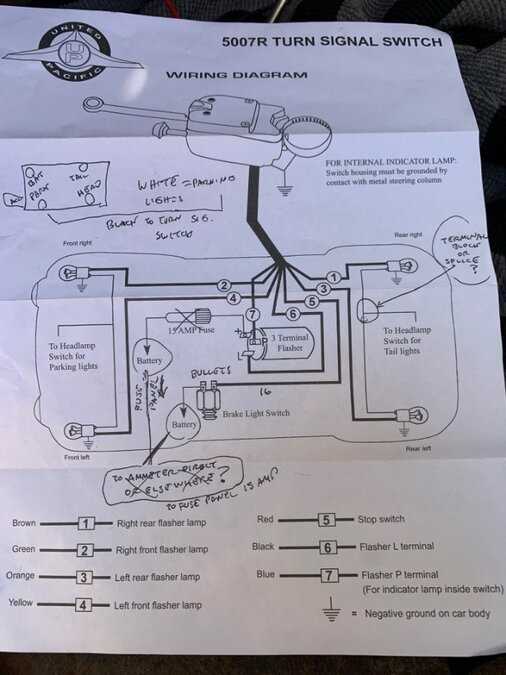 UNITED
UP
PACIFIC
5007R TURN SIGNAL SWITCH
WIRING DIAGRAM
FOR INTERNAL INDICATOR LAMP:
Switch housing must be grounded by
contact with metal steering column
BAT
TAIL
ACC
PARK
HEAD
WHITE = PARKING
LIGHTS
BLACK TO TURN SIG.
SWITCH
TERMINAL
BLOCK
OR
SPLICE
?
Front right
Rear right
2
4
1
3
5
6
7
15 AMP Fuse
3 Terminal
Flasher
To Headlamp
Switch for
Parking lights
To Headlamp
Switch for
Tail lights
Battery
FUSE
PANEL
BULLETS
16
Brake Light Switch
Battery
Front left
Rear left
TO AMMETER DIRECT
OR ELSEWHERE?
TO FUSE PANEL 15 AMP
Brown 1 Right rear flasher lamp
Green 2 Right front flasher lamp
Orange 3 Left rear flasher lamp
Yellow 4 Left front flasher lamp
Red 5 Stop switch
Black 6 Flasher L terminal
Blue 7 Flasher P terminal
(For indicator lamp inside switch)
= Negative ground on car body